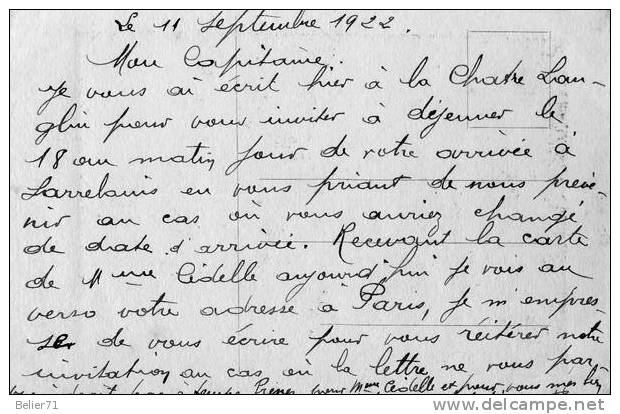 Le 11 septembre 1922.
Mon Capitaine.
Je vous ai écrit hier à la Chatre Lan-
glin pour vous inviter à déjeuner le
18 au matin jour de votre arrivée à
en vous priant de nous préve-
nir au cas où vous auriez changé
de date d'arrivée. Recevant la carte
de Mme Cidelle aujourd'hui je vois au
verso votre adresse à Paris, je m'empres-
se de vous écrire pour vous réitérer notre
invitation au cas où la lettre ne vous par-
pour Mme Cidelle et pour vous mes
Belier71
delcampe.net